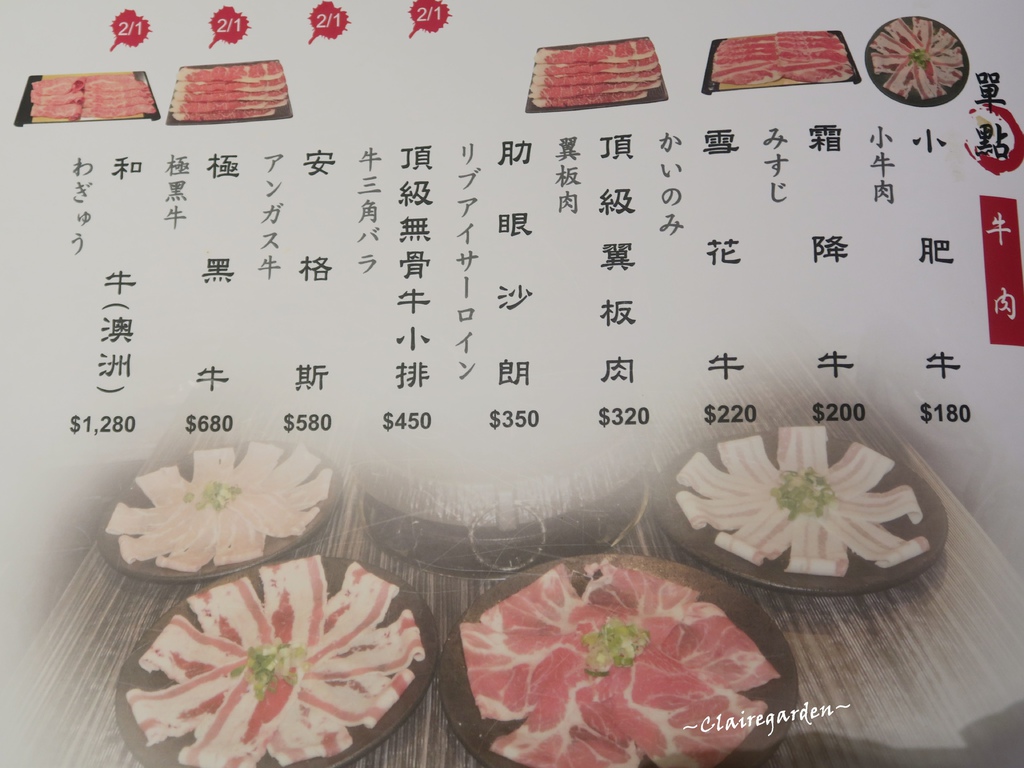 單點
牛肉
小肥牛
小牛肉
$180
霜降牛
みすじ
$200
雪花牛
かいのみ
$220
頂級翼板肉
翼板肉
$320
肋眼沙朗
リブアイサーロイン
$350
2/1
頂級無骨牛小排
牛三角バラ
$450
2/1
安格斯
アンガス牛
$580
2/1
極黑牛
極黒牛
$680
2/1
和牛(澳洲)
わぎゅう
$1,280
~Clairegarden~